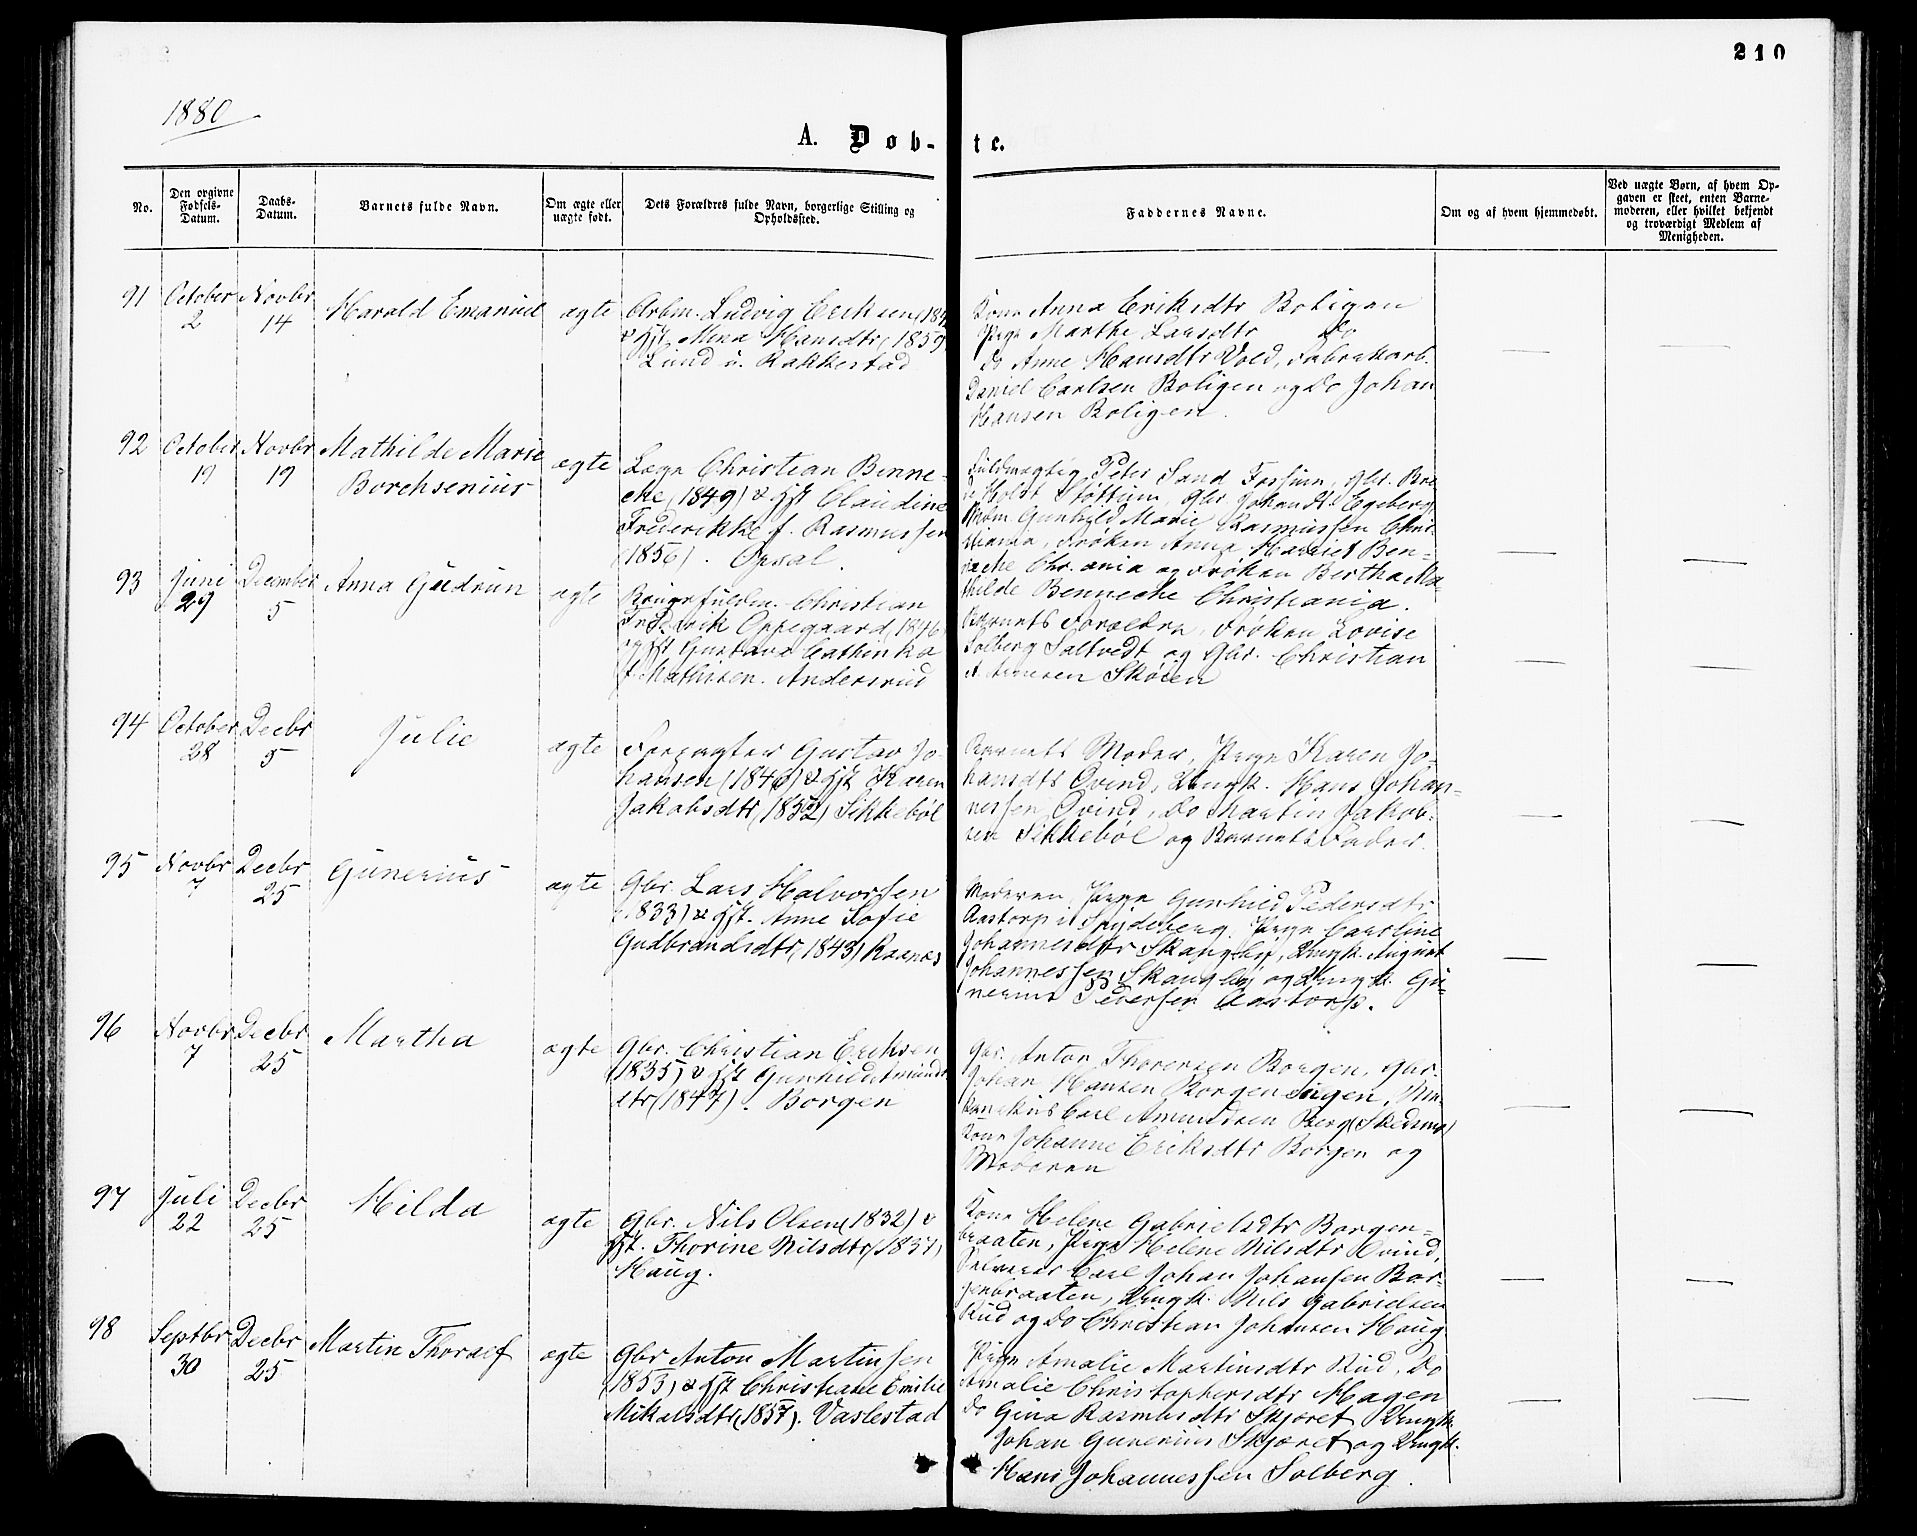 210
1880
A. Døb-te.
No.
Den opgivne Fødsels-Datum.
Daabs-Datum.
Barnets fulde Navn.
Om ægte eller uægte født.
Dets Forældres fulde Navn, borgerlige Stilling og Opholdssted.
Faddernes Navne.
Om og af hvem hjemmedøbt.
Ved uægte Børn, af hvem Opgaven er skeet, enten Barnemoderen, eller hvilket bekjendt og troværdigt Medlem af Menigheden.
91
October 2
Novbr 14
Harald Emanuel
ægte
Arbm. Ludvig Eriksen
& Hst. Mina Hansdtr (1859)
Lund i. Rakkestad
Kone Anna Eriksdtr Boligen
Pige Marthe Larsdtr Do
Do Anne Hansdtr Vold, Fabrikarb.
Daniel Carlsen Boligen og Do Johan
Hansen Boligen.
92
October 19
Novbr 19
Mathilde Marie
Borchsenius
ægte
Læge Christian Benne-
che (1849) & Hst Claudine
Frederikke f. Rasmussen
(1856). Opsal.
Fuldmægtig Peter Sand Fossum, Gbr.
Holst Støttum, Gbr Johan H. Egeberg,
Gunhild Marie Rasmussen Chri-
stiania, Frøken Anna Harriet Ben-
neche Chr.ania og Frøken Bertha Ma-
thilde Benneche Christiania.
93
Juni 29
December 5
Anna Gudrun
ægte
Christian
Fredrik Oppegaard (1846)
og Hst Gustava Cathinka
f. Mathisen. Andersrud
Barnets Forældre, Frøken Lovise
Solberg Saltvedt og Gbr. Christian
A. Arnesen Skøien
94
October 28
Decbr 5
Julie
ægte
Forpagter Gustav Jo-
hansen (1846) & Hst Karen
Jakobsdtr (1852) Sikkebøl
Barnets Moder, Pige Karen Jo-
hansdtr Øvind, Ungk. Hans Johan-
nessen Øvind, Do Martin Jakob-
sen Sikkebøl og Barnets Fader.
95
Novbr 7
Decbr 25
Gunerius
ægte
Gbr. Lars Halvorsen
(1833) & Hst. Anne Sofie
Gudbrandsdtr (1843) Raanaas
Moderen, Pige Gunhild Pedersdtr
Aastorp i Spydeberg, Pige Caroline
Johannesdtr Skangsby, Ungk. August
Johannessen Skangsby og Ungk. Gu-
nerius Pedersen Aastorp.
96
Novbr 7
Decbr 25
Martha
ægte
Gbr. Christian Eriksen
(1835) & Hst Gunhild Amunds-
dtr (1847). Borgen
Gbr. Anton Thoresen Borgen, Gbr.
Johan Hansen Borgen
Carl Amundsen Berg (Skedsmo)
Kone Johanne Eriksdtr Borgen og
Moderen
97
Juli 22
Decbr 25
Hilda
ægte
Gbr. Nils Olsen (1832) &
Hst. Thorine Nilsdtr (1837)
Haug.
Kone Helene Gabrielsdtr Borgen-
braaten, Pige Helene Nilsdtr Øvind,
Selveier Carl Johan Johansen Bor-
genbraaten, Ungk. Nils Gabrielsen
Rud og Do Christian Johansen Haug
98
Septbr 30
Decbr 25
Martin Thoralf
ægte
Gbr Anton Martinsen
(1853) & Hst Christiane Emilie
Mikalsdtr (1857). Vaslestad
Pige Amalie Martinsdtr Rud, Do
Amalie Christophersdtr Hagen
Do Gina Rasmusdtr Skjæret Ungk.
Johan Gunerius Skjæret og Ungk.
Hans Johannessen Solberg.